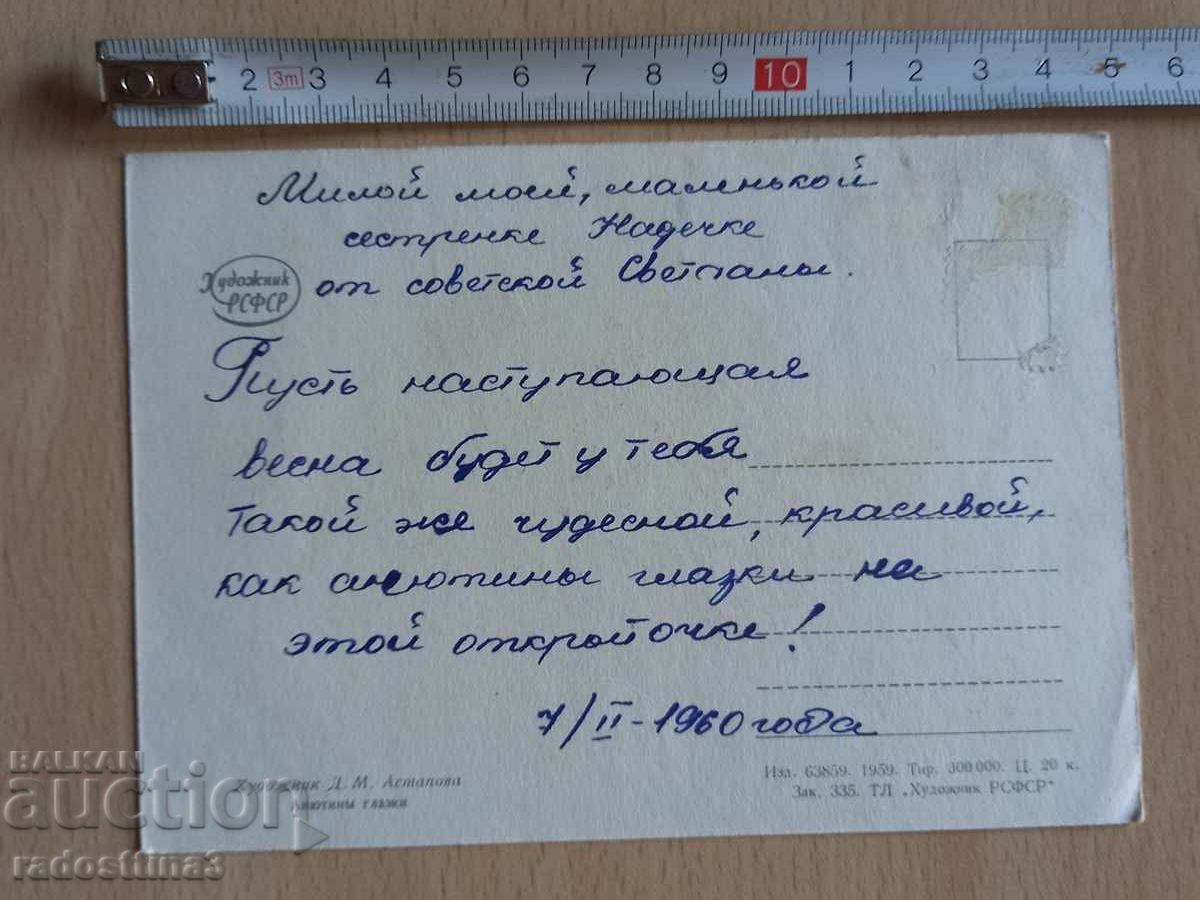 2 3m 3 4 5 6 7 8 9 10 1 2 3 4 5 6
Милой моей, маленькой
сестренке Надечке
Художник
РСФСР
от советской Светланы.
Пусть наступающая
весна будет у тебя
такой же чудесной, красивой,
как анютины глазки на
этой открыточке!
7/II-1960 года
Художник Д. М. Астапова
Анютины глазки
Изд. 63859. 1959. Тир. 300 000. Ц. 20 к.
Зак. 335. ТЛ „Художник РСФСР“
BALKAN
auction
radosttina3